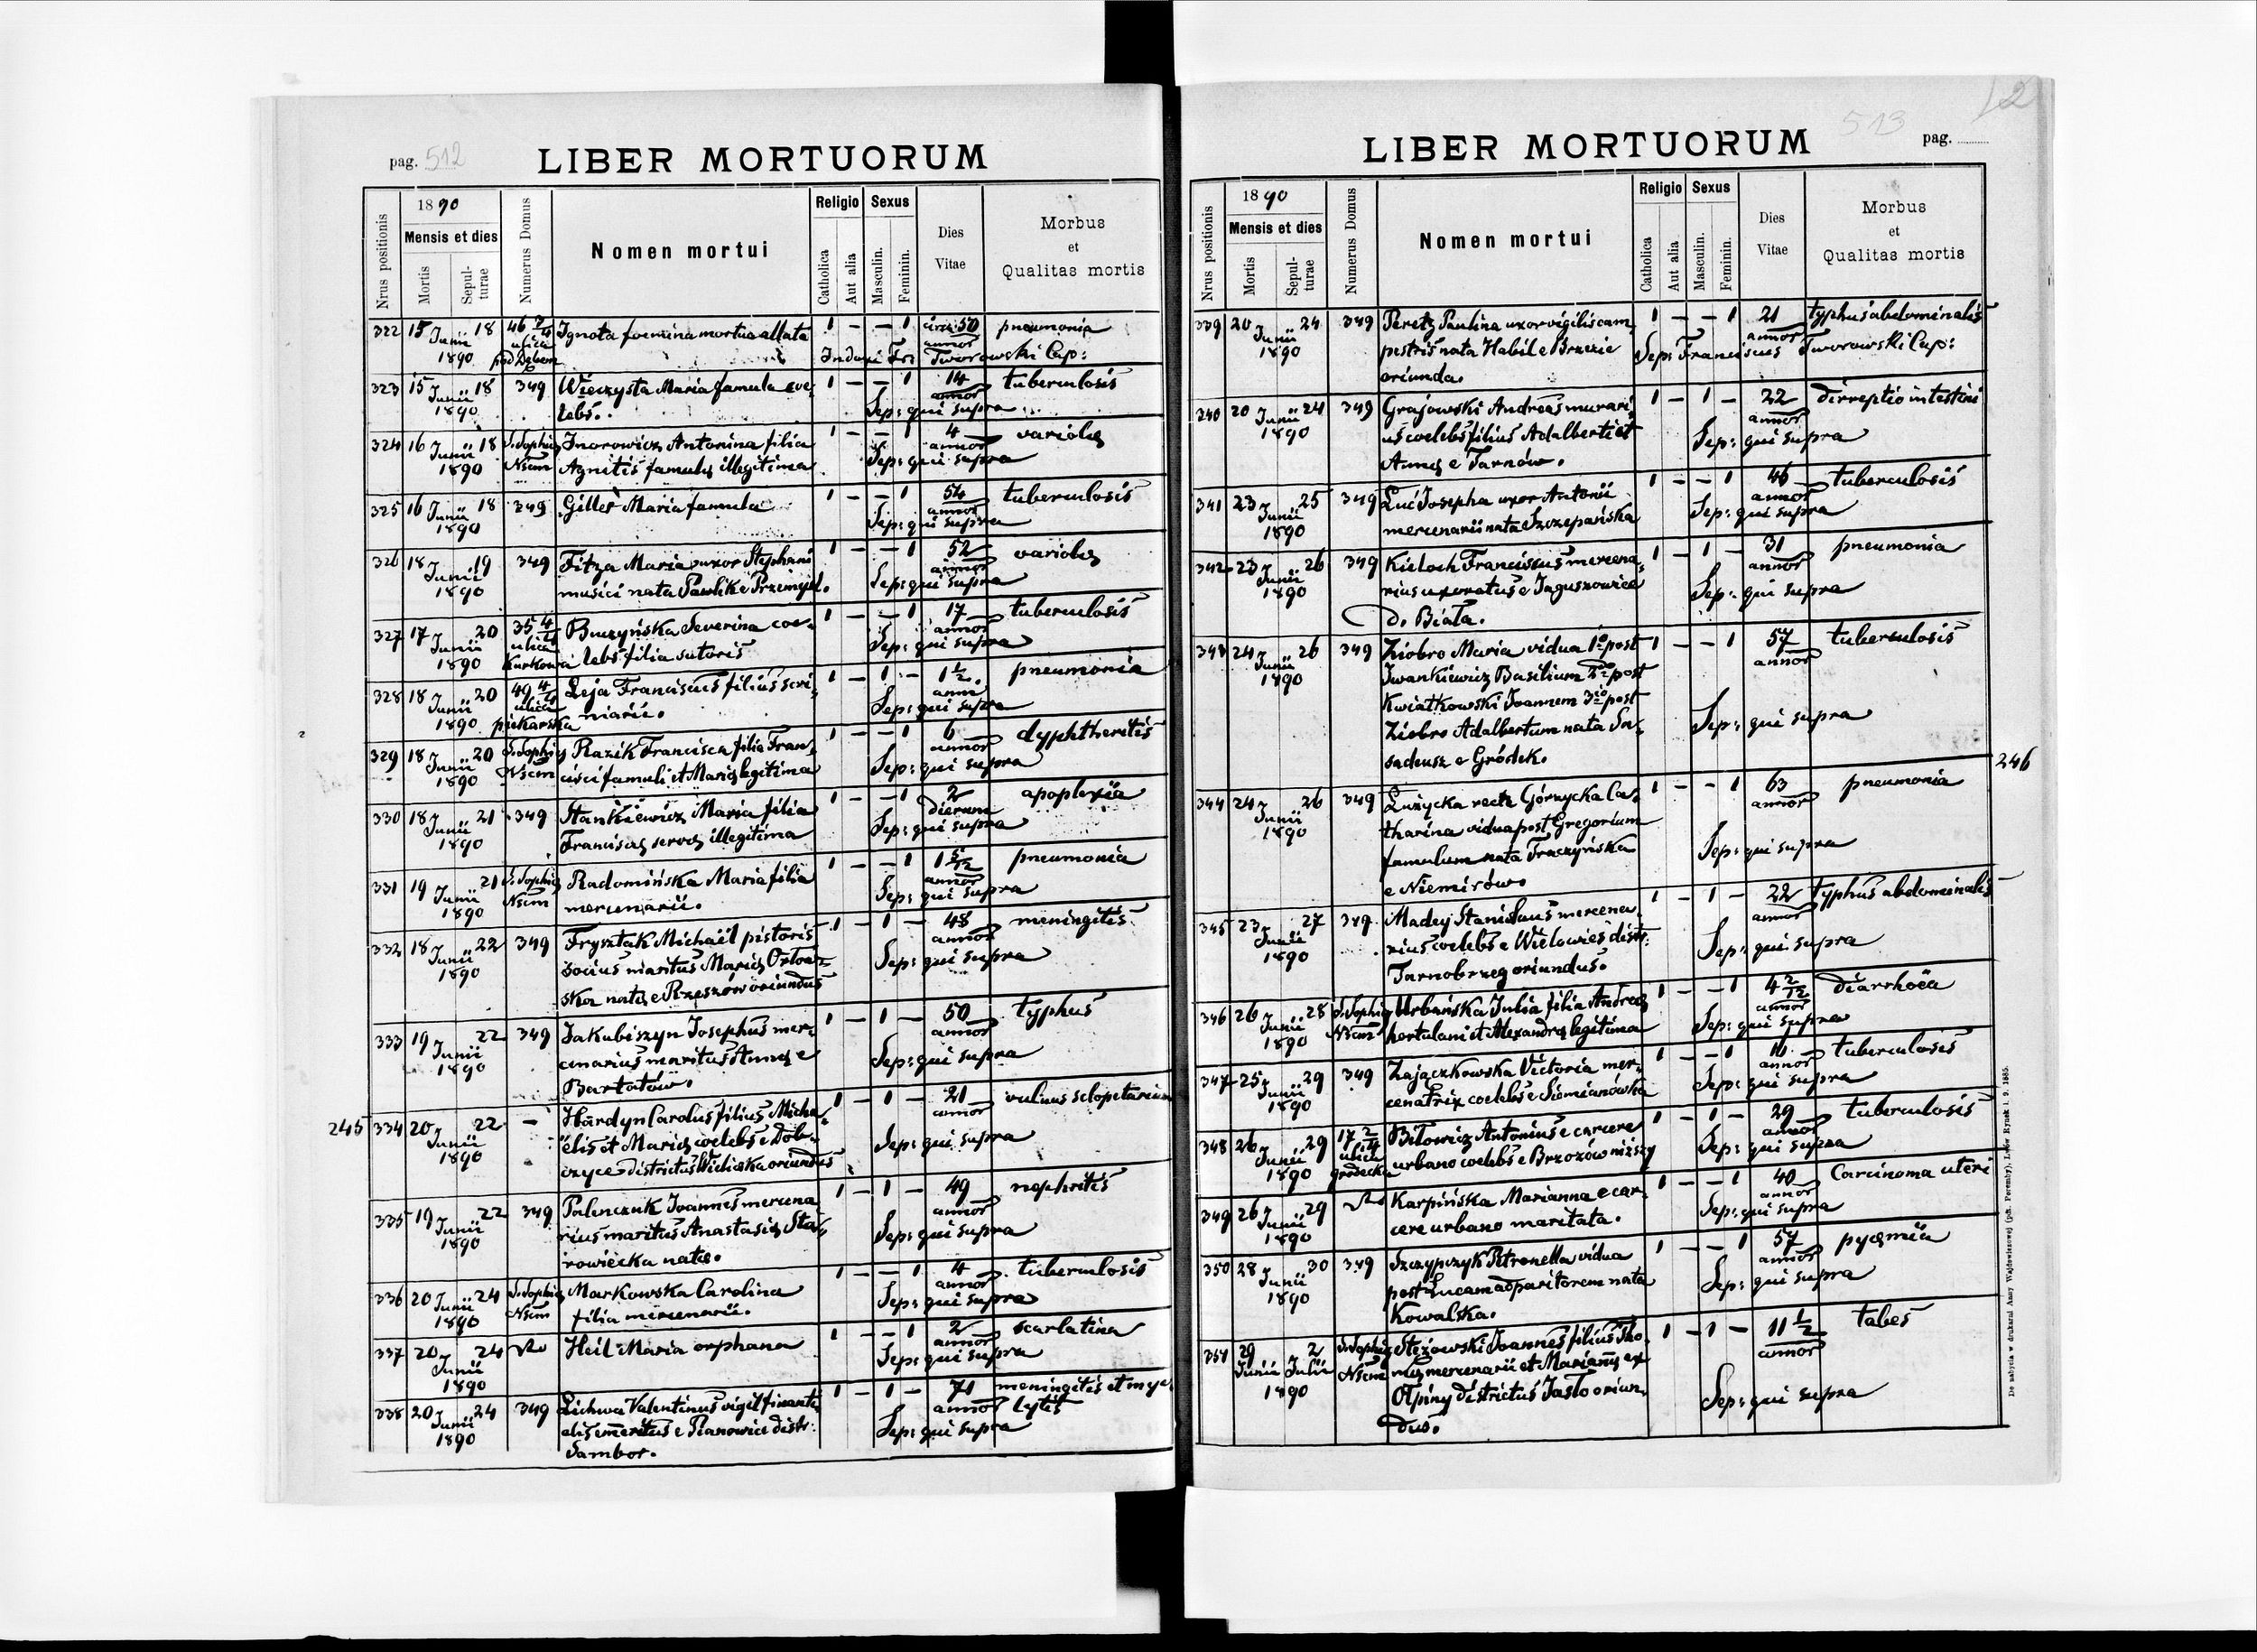 pag. 512
LIBER MORTUORUM
Nrus positionis
1890
Mensis et dies
Mortis
Sepul-
turae
Numerus Domus
Nomen mortui
Religio
Catholica
Aut alia
Sexus
Masculin.
Feminin.
Dies
Vitae
Morbus
et
Qualitas mortis
322 15 Junii 18 46 2/4 Ignota foemina mortua allata 1 – – 1 circ. 50 pneumonia
1890 ulica pod Dębem Induxi Fr: annor Tworowski Cap:
323 15 Junii 18 349 Wieczysta Maria famula coe- 1 – – 1 14 tuberculosis
1890 lebs. annor Sep: qui supra
324 16 Junii 18 S. Sophia Inorowicz Antonina filia 1 – – 1 4 variolæ
1890 Nsum Agnetis famulæ illegitima annor Sep: qui supra
325 16 Junii 18 349 Giller Maria famula 1 – – 1 54 tuberculosis
1890 annor Sep: qui supra
326 18 Junii 19 349 Fitza Maria uxor Stephani 1 – – 1 52 variolæ
1890 musici nata Pawlik e Przemyśl. annor Sep: qui supra
327 17 Junii 20 35 4/4 Buczyńska Severina coe- 1 – – 1 17 tuberculosis
1890 ulica Kurkowa lebs filia sutoris annor Sep: qui supra
328 18 Junii 20 49 4/4 Leja Franciscus filius scri- 1 – 1 – 1 1/2 pneumonia
1890 ulica piekarska niarii. anni Sep: qui supra
329 18 Junii 20 S. Sophia Razik Francisca filia Fran- 1 – – 1 6 dyphtheritis
1890 Nsum cisci famuli et Mariæ legitima annor Sep: qui supra
330 18 Junii 21 349 Stankiewicz Maria filia 1 – – 1 2 apoplexia
1890 Franciscæ servæ illegitima dierum Sep: qui supra
331 19 Junii 21 S. Sophia Radomińska Maria filia 1 – – 1 1 5/12 pneumonia
1890 Nsum mercenarii. annor Sep: qui supra
332 18 Junii 22 349 Frysztak Michaël pistoris 1 – 1 – 48 meningitis
1890 socius maritus Mariæ annor Sep: qui supra
ska natæ e Rzeszów oriundus
333 19 Junii 22 349 Jakubiszyn Josephus mer- 1 – 1 – 50 typhus
1890 cenarius maritus Annæ e annor Sep: qui supra
Bartatów.
245 334 20 Junii 22 – Hardyn Carolus filius Micha- 1 – 1 – 21 vulnus sclopetarium
1890 ëlis et Mariæ coelebs e Dob- annor Sep: qui supra
czyce districtus Wieliczka oriundus
335 19 Junii 22 349 Palenczuk Joannes mercena- 1 – 1 – 49 nephritis
1890 rius maritus Anastasiæ Sta- annor Sep: qui supra
rowiecka natæ.
336 20 Junii 24 S. Sophia Markowska Carolina 1 – – 1 4 tuberculosis
1890 Nsum filia mercenarii. annor Sep: qui supra
337 20 Junii 24 Heil Maria orphana 1 – – 1 2 scarlatina
1890 annor Sep: qui supra
338 20 Junii 24 349 Lichwa Valentinus vigil financi- 1 – 1 – 71 meningitis et mye-
1890 alis emeritus e Pianowice distr: annor litis Sep: qui supra
Sambor.
12
513
LIBER MORTUORUM
pag.
Nrus positionis
1890
Mensis et dies
Mortis
Sepul-
turae
Numerus Domus
Nomen mortui
Religio
Catholica
Aut alia
Sexus
Masculin.
Feminin.
Dies
Vitae
Morbus
et
Qualitas mortis
339 20 Junii 24 349 Peretz Paulina uxor vigilis cam- 1 – – 1 21 typhus abdominalis
1890 pestris nata Habil e Brzezie annor Sep: Franciscus Tworowski Cap:
oriunda.
340 20 Junii 24 349 Grajowski Andreas murari- 1 – 1 – 22 dirreptio intestini
1890 us coelebs filius Adalberti et annor Sep: qui supra
Annæ e Tarnów.
341 23 Junii 25 349 Luć Josepha uxor Antonii 1 – – 1 46 tuberculosis
1890 mercenarii nata Szczepańska annor Sep: qui supra
342 23 Junii 26 349 Kieloch Franciscus mercena- 1 – 1 – 31 pneumonia
1890 rius uxoratus e Jaguszowice annor Sep: qui supra
D. Biała.
343 24 Junii 26 349 Ziobro Maria vidua 1º post 1 – – 1 57 tuberculosis
1890 Iwankiewicz Basilium 2do post annor
Kwiatkowski Joannem 3tio post
Ziobro Adalbertum nata Sa- Sep: qui supra
sadeusz e Gródek.
246
344 24 Junii 26 349 Łużycka recte Górzycka Ca- 1 – – 1 63 pneumonia
1890 tharina vidua post Gregorium annor
famulum nata Traczyńska Sep: qui supra
e Niemirów.
345 23 Junii 27 349 Madey Stanislaus mercena- 1 – 1 – 22 typhus abdominalis
1890 rius coelebs e Wielowieś distr: annor Sep: qui supra
Tarnobrzeg oriundus.
346 26 Junii 28 S. Sophia Urbańska Julia filia Andreæ 1 – – 1 4 2/12 diarrhoea
1890 Nsum hortulani et Alexandræ legitima annor Sep: qui supra
347 25 Junii 29 349 Zajączkowska Victoria mer- 1 – – 1 tuberculosis
1890 cenatrix coelebs e Siemianówka annor Sep: qui supra
348 26 Junii 29 17 2/4 Bełowicz Antonius e carcere 1 – 1 – 29 tuberculosis
1890 ulica gródecka urbano coelebs e Brzozów niższy annor Sep: qui supra
349 26 Junii 29 Karpińska Marianna e car- 1 – – 1 40 Carcinoma uteri
1890 cere urbano maritata. annor Sep: qui supra
350 28 Junii 30 349 Szczypczyk Petronella vidua 1 – – 1 57 pyæmia
1890 post Lucam adparitorem nata annor Sep: qui supra
Kowalska.
351 29 Junii 2 Julii S. Sophia Steżowski Joannes filius Tho- 1 – 1 – 11 1/2 tabes
1890 Nsum mæ mercenarii et Mariannæ ex annor
Ołpiny districtus Jasło oriun- Sep: qui supra
dus.
De nabycia w drukarni Anny Wajdowiczowej (pd. Poremby), Lwów Rynek l. 9. 1885.